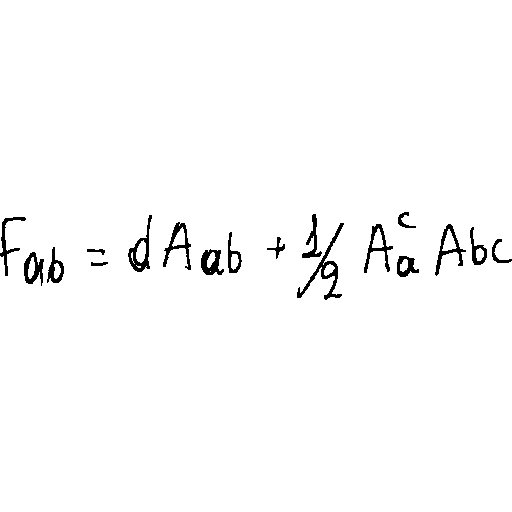 F_{ab} = dA_{ab} + 1/2 A_a^c A_{bc}